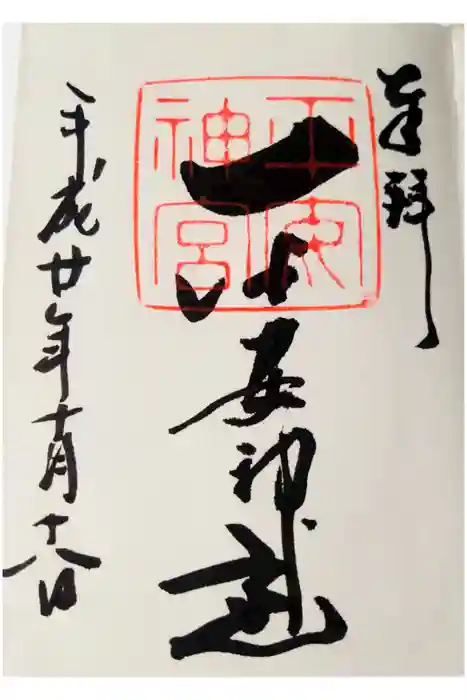 奉拝
平安神宮
平安
神宮
平成廿年十月十八日